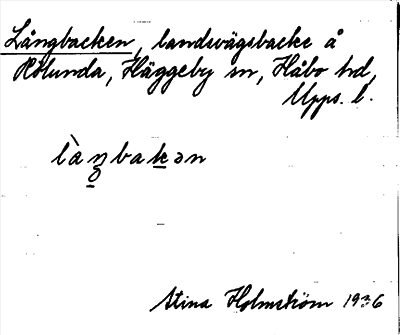 Långbacken, landsvägsbacke å
Rölunda, Häggeby sn, Håbo hd,
Upps. l.
làŋbakən
Stina Holmström 1936